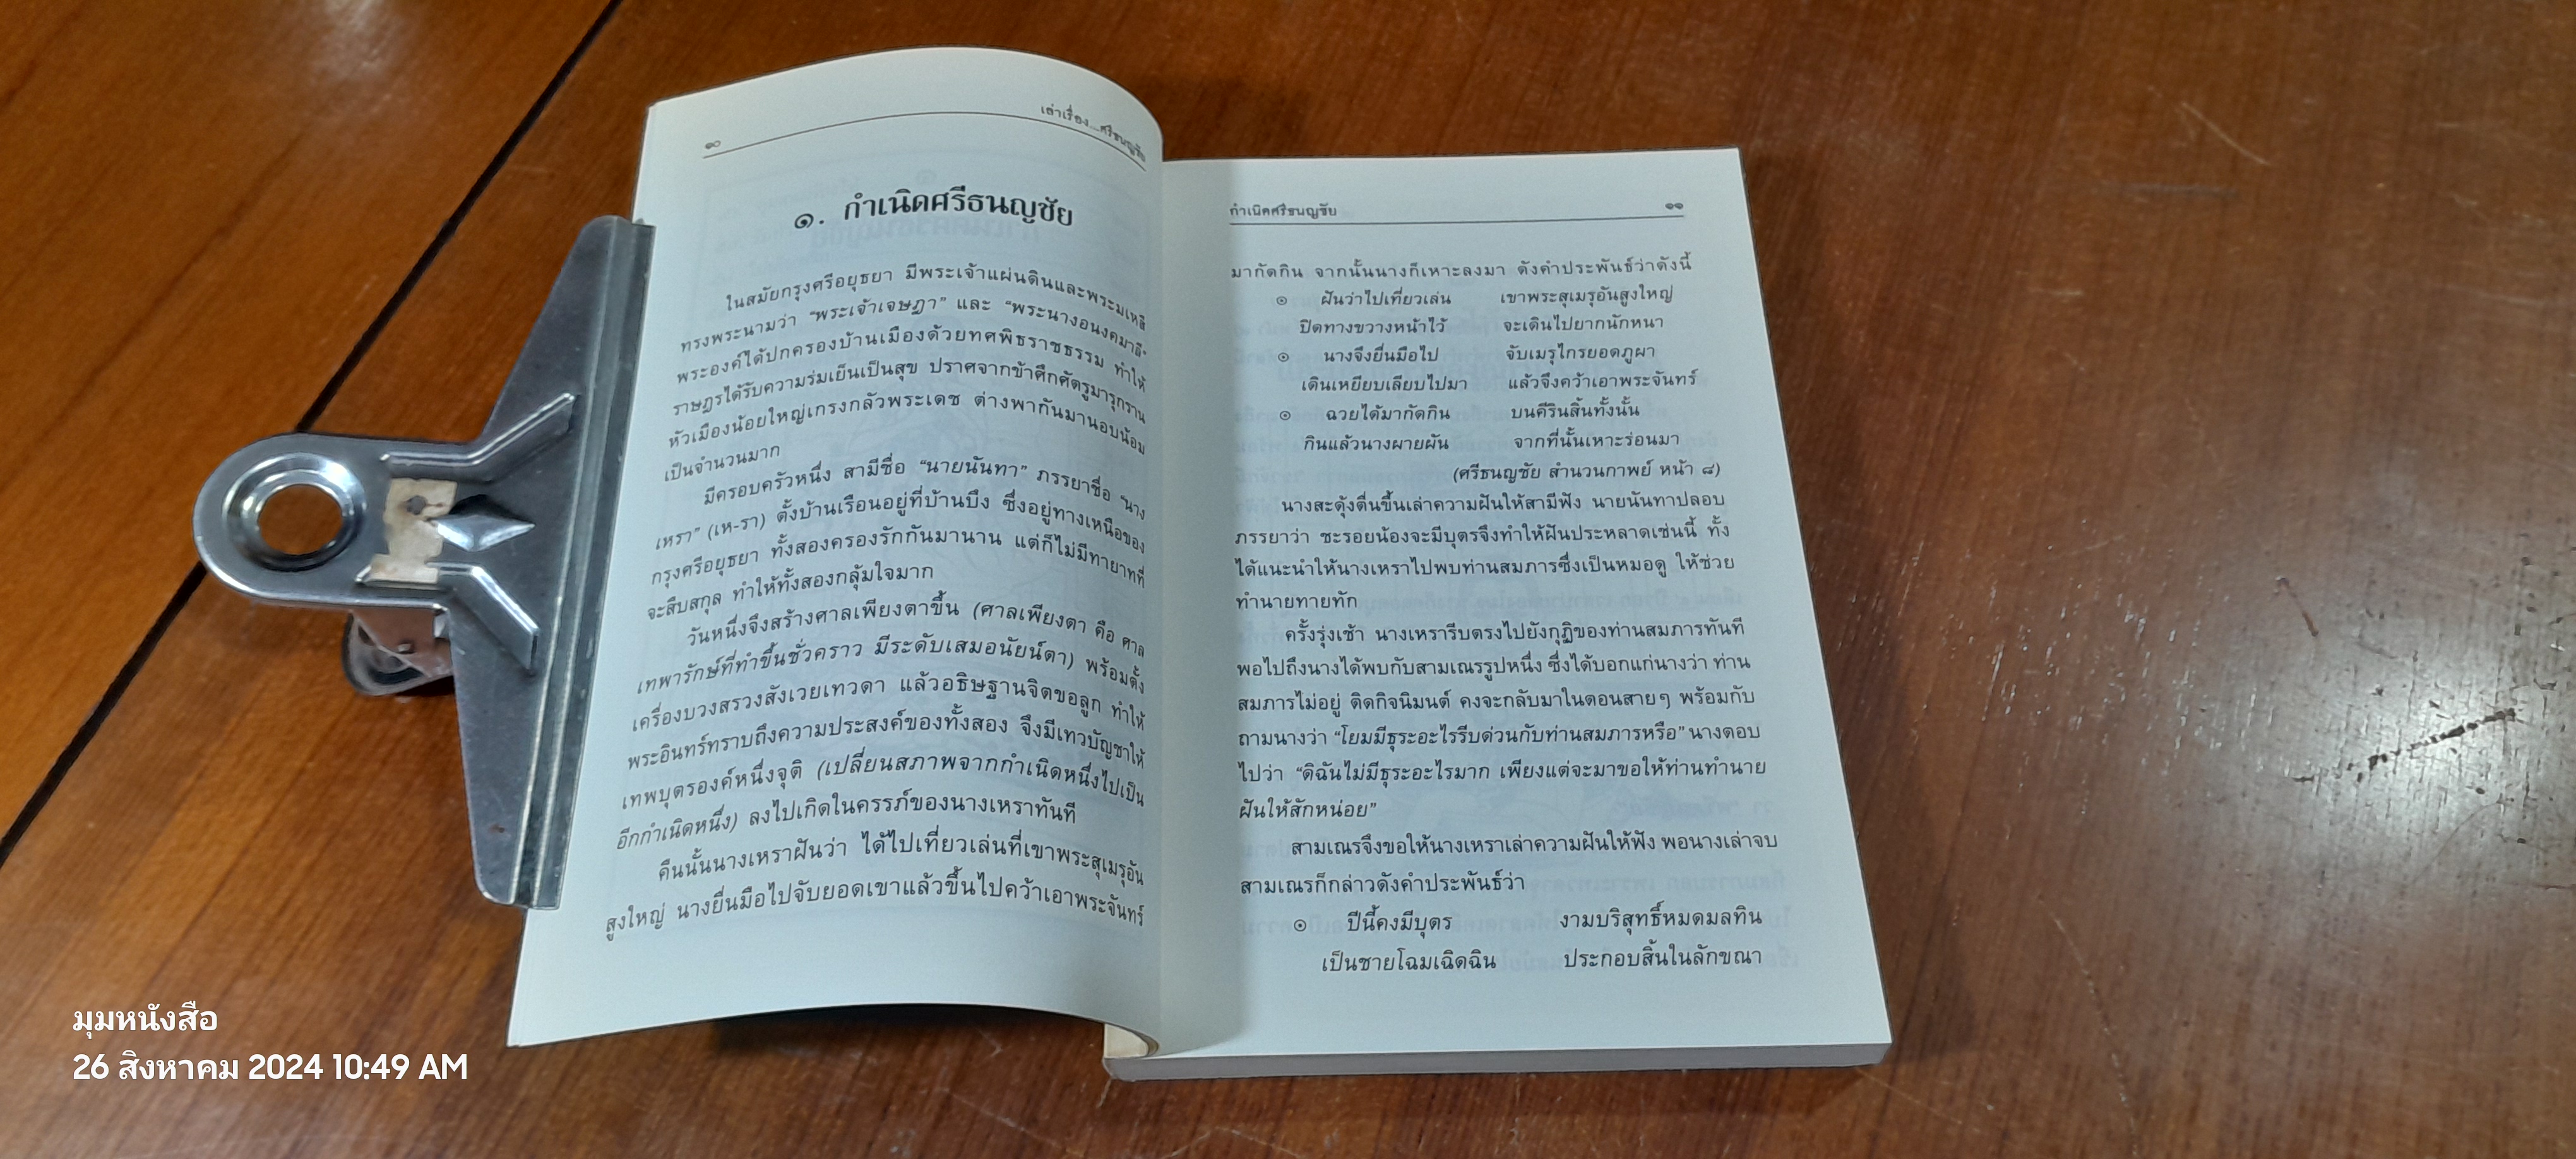 ๑๐
เล่าเรื่อง...ศรีธนญชัย
๑. กำเนิดศรีธนญชัย
ในสมัยกรุงศรีอยุธยา มีพระเจ้าแผ่นดินและพระมเหสี
ทรงพระนามว่า “พระเจ้าเจษฎา” และ “พระนางอนงคมาลี”
พระองค์ได้ปกครองบ้านเมืองด้วยทศพิธราชธรรม ทำให้
ราษฎรได้รับความร่มเย็นเป็นสุข ปราศจากข้าศึกศัตรูมารุกราน
หัวเมืองน้อยใหญ่เกรงกลัวพระเดช ต่างพากันมานอบน้อม
เป็นจำนวนมาก
มีครอบครัวหนึ่ง สามีชื่อ “นายนันทา” ภรรยาชื่อ “นาง
เหรา” (เห-รา) ตั้งบ้านเรือนอยู่ที่บ้านบึง ซึ่งอยู่ทางเหนือของ
กรุงศรีอยุธยา ทั้งสองครองรักกันมานาน แต่ก็ไม่มีทายาทที่
จะสืบสกุล ทำให้ทั้งสองกลุ้มใจมาก
วันหนึ่งจึงสร้างศาลเพียงตาขึ้น (ศาลเพียงตา คือ ศาล
เทพารักษ์ที่ทำขึ้นชั่วคราว มีระดับเสมอนัยน์ตา) พร้อมตั้ง
เครื่องบวงสรวงสังเวยเทวดา แล้วอธิษฐานจิตขอลูก ทำให้
พระอินทร์ทราบถึงความประสงค์ของทั้งสอง จึงมีเทวบัญชาให้
เทพบุตรองค์หนึ่งจุติ (เปลี่ยนสภาพจากกำเนิดหนึ่งไปเป็น
อีกกำเนิดหนึ่ง) ลงไปเกิดในครรภ์ของนางเหราทันที
คืนนั้นนางเหราฝันว่า ได้ไปเที่ยวเล่นที่เขาพระสุเมรุอัน
สูงใหญ่ นางยื่นมือไปจับยอดเขาแล้วขึ้นไปคว้าเอาพระจันทร์
กำเนิดศรีธนญชัย
๑๑
มากัดกิน จากนั้นนางก็เหาะลงมา ดังคำประพันธ์ว่าดังนี้
๏ ฝันว่าไปเที่ยวเล่น เขาพระสุเมรุอันสูงใหญ่
ปิดทางขวางหน้าไว้ จะเดินไปยากนักหนา
๏ นางจึงยื่นมือไป จับเมรุไกรยอดภูผา
เดินเหยียบเลียบไปมา แล้วจึงคว้าเอาพระจันทร์
๏ ฉวยได้มากัดกิน บนคีรินสิ้นทั้งนั้น
กินแล้วนางผายผัน จากที่นั้นเหาะร่อนมา
(ศรีธนญชัย สำนวนกาพย์ หน้า ๘)
นางสะดุ้งตื่นขึ้นเล่าความฝันให้สามีฟัง นายนันทาปลอบ
ภรรยาว่า ชะรอยน้องจะมีบุตรจึงทำให้ฝันประหลาดเช่นนี้ ทั้ง
ได้แนะนำให้นางเหราไปพบท่านสมภารซึ่งเป็นหมอดู ให้ช่วย
ทำนายทายทัก
ครั้งรุ่งเช้า นางเหรารีบตรงไปยังกุฏิของท่านสมภารทันที
พอไปถึงนางได้พบกับสามเณรรูปหนึ่ง ซึ่งได้บอกแก่นางว่า ท่าน
สมภารไม่อยู่ ติดกิจนิมนต์ คงจะกลับมาในตอนสายๆ พร้อมกับ
ถามนางว่า “โยมมีธุระอะไรรีบด่วนกับท่านสมภารหรือ” นางตอบ
ไปว่า “ดิฉันไม่มีธุระอะไรมาก เพียงแต่จะมาขอให้ท่านทำนาย
ฝันให้สักหน่อย”
สามเณรจึงขอให้นางเหราเล่าความฝันให้ฟัง พอนางเล่าจบ
สามเณรก็กล่าวดังคำประพันธ์ว่า
๏ ปีนี้คงมีบุตร งามบริสุทธิ์หมดมลทิน
เป็นชายโฉมเฉิดฉิน ประกอบสิ้นในลักขณา
มุมหนังสือ
26 สิงหาคม 2024 10:49 AM